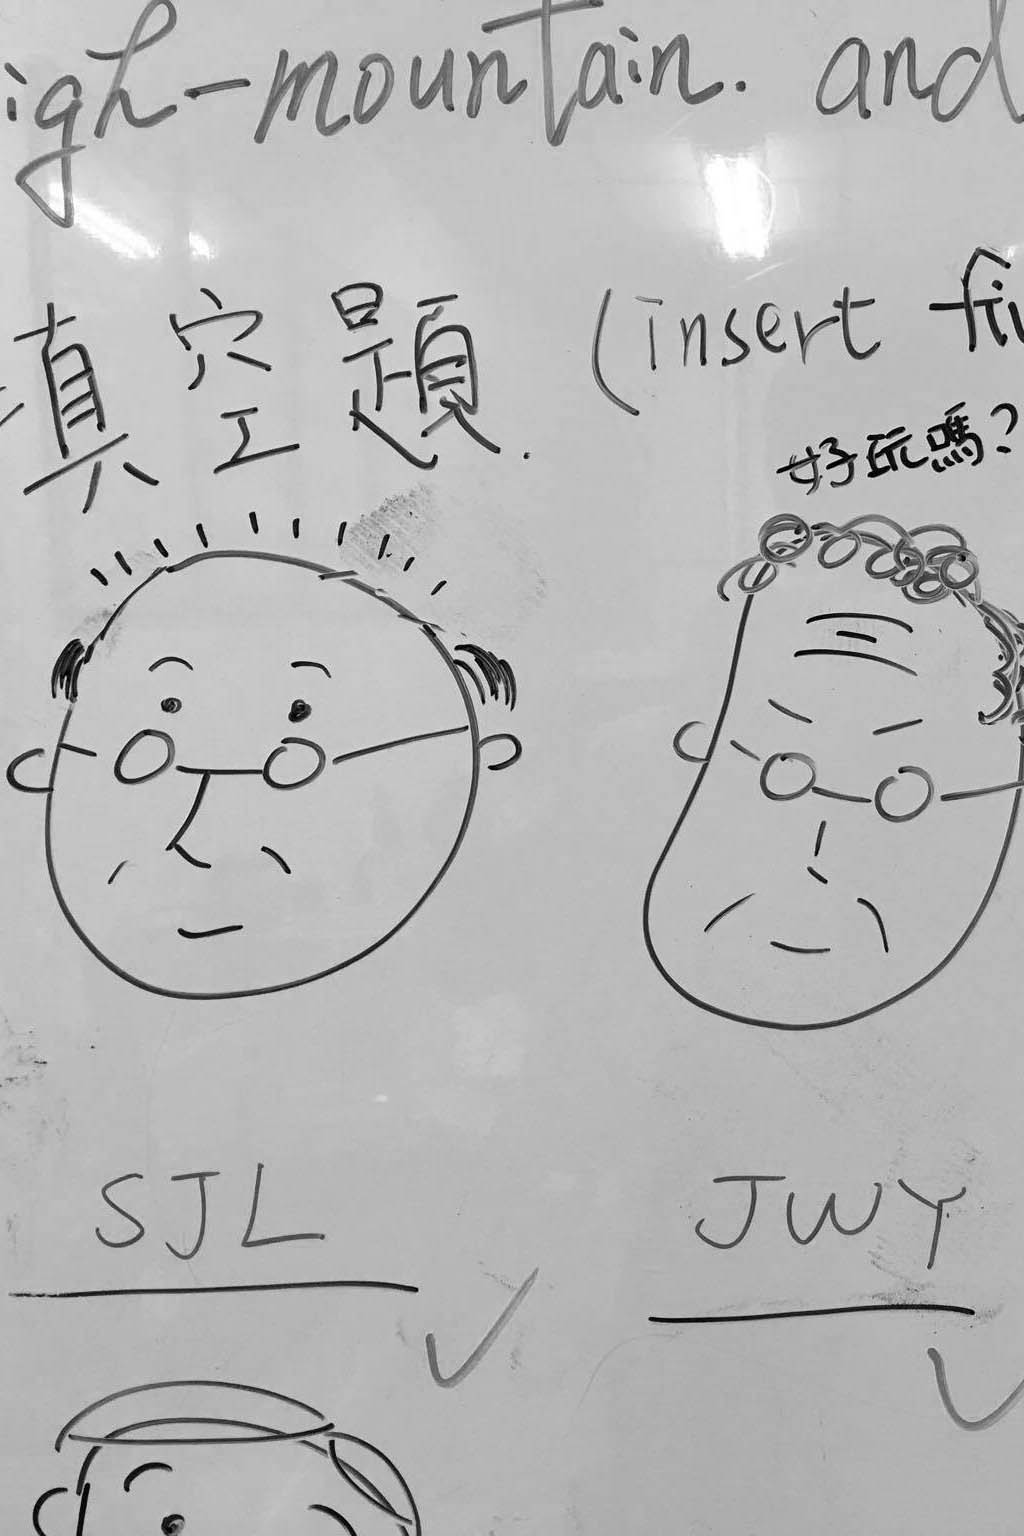 igh-mountain. and
填空題. (insert fi
好玩嗎?
SJL JWY